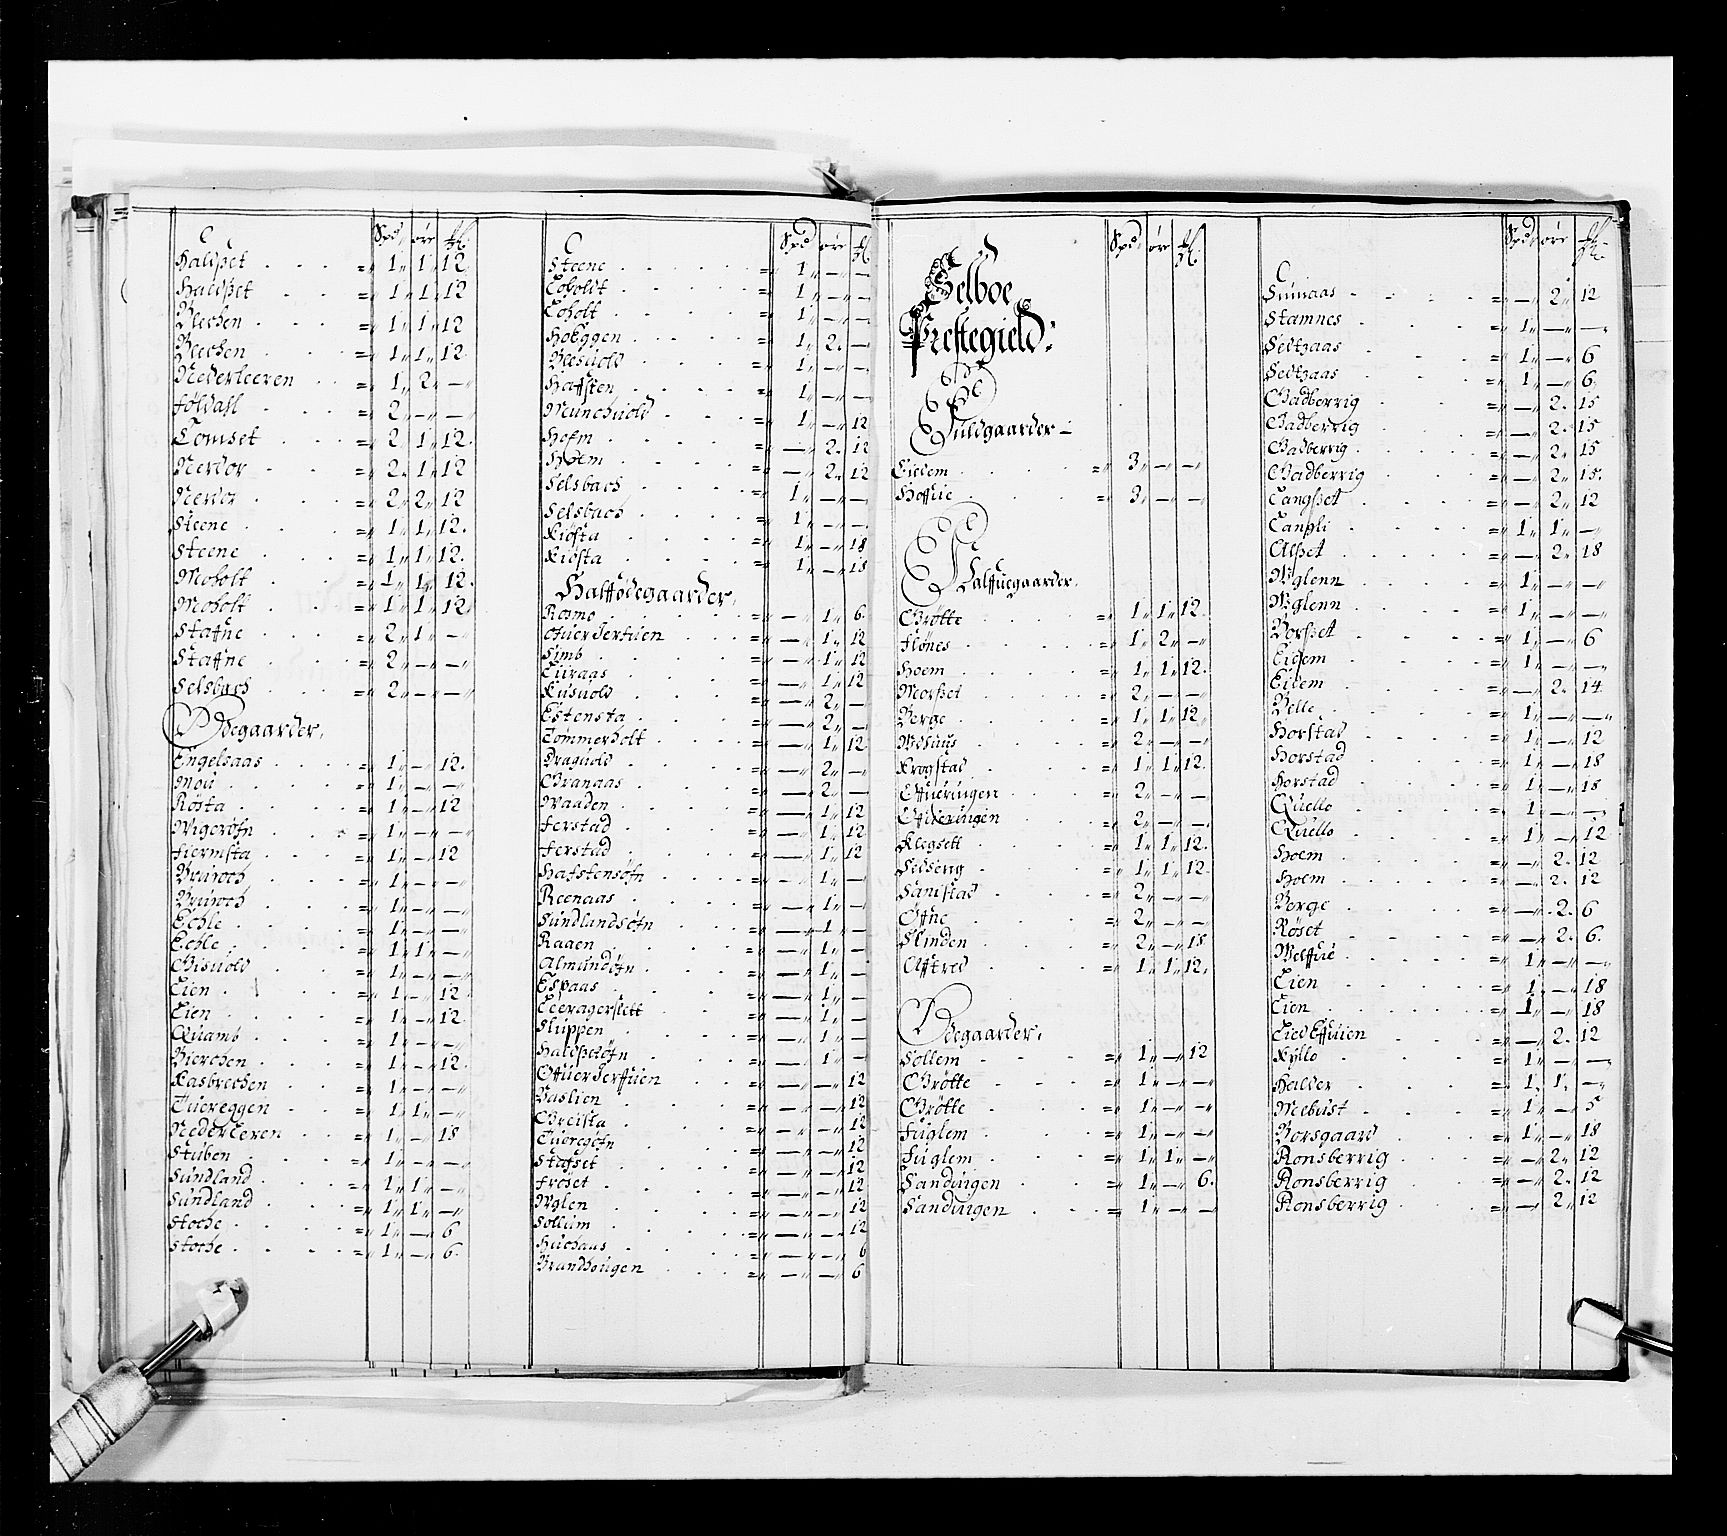 Spd. øre
Haldset = 1 1 12
Haldset 1 1 12
Blechen = 1 1 12
Blechen = 1 1 12
Nederleeren = 1 2 —
Foldall = 2 — —
Tomset = 2 1 12
Nervor = 2 1 12
Nervor = 2 2 12
Steene = 1 1 12
Steene = 1 1 12
Moholt = 1 1 12
Moholt = 1 1 12
Staffne = 2 1 —
Staffne = 2 — —
Selsbach = 2 — —
Ødegaarder,
Engelsaas = 1 — 12
Moü = 1 — —
Røsta = 1 — 12
Wigerøfn = 1 — —
Fiermsta = 1 — 12
Brüroch = 1 — —
Brüroch = 1 — —
Echle = 1 — —
Echle = 1 1 —
Gisuold = 1 — —
Eien = 1 — 12
Eien = 1 — 12
Quamb = 1 — —
Bierchen = 1 — 12
Kasbrechen = 1 — —
Tuereggen = 1 1 —
Nederleren = 1 — 18
Stüben = 1 — —
Sundland = 1 1 —
Sundland = 1 1 —
Stoche = 1 — 6
Stoche = 1 — 6
Spd øre
Steene = 1 — —
Loholdt = 1 — —
Loholt = 1 — —
Hoeggen = 1 2 —
Bleswold = 1 — —
Haffsten = 1 — —
Munchuold = 1 — 12
Hofm = — 2 12
Hoem = — 2 12
Selsbach = 1 — —
Selsbach = 1 — —
Kiösta = 1 — 18
Kiösta = 1 — 18
Halffødegaarder,
Rosmo = — 1 6
Ofuer Jerfuen = — 1 12
Simb = — 1 12
Euraas = — 1 12
Kusuold = — 2 —
Estensta = — 2 —
Tømmerholt = — 1 12
Draguold = — 2 —
Granaas = — 2 —
Waaden = — 1 12
Ferstad = — 1 12
Ferstad = — 1 12
Hafstensøfn = — 1 —
Reenaas = — 1 —
Sundlandsøfn = — 1 —
Raaen = — 1 —
Almundøfn = — 1 —
Espaas = — 1 —
Leeragerslett = — 1 —
Sluppen = — 1 —
Haldsetøfn = — 1 —
Offuer Jerffuen = — — 12
Baslien = — — 12
Greista = — — 12
Tueregøfn = — — 12
Stafset = — — 12
Frøset = — — 12
Uglen = — — 12
Sollum = — — 12
Huchaas = — — 6
Brandhougen = — — 6
Spd. øre
Selboe
Prestegield:
Fuldgaarder
Eidem = 3 — —
Hoffue = 3 — —
Halffuegaarder.
Grøtte = 1 1 12
Flønes = 1 2 —
Hoem = 1 1 12
Morset = 2 — —
Berge = 1 1 12
Mosuus = 2 — —
Krogstad = 1 1 12
Effueringen = 2 — —
Effueringen = 2 — —
Klegsett = 1 1 12
Sesseng = 1 1 12
Sanistad = 2 — —
Øffne = 2 — —
Slinden = 2 — 18
Afftred = 1 1 12
Ødegaarder.
Sollem = 1 — 12
Grøtte = 1 — —
Grøtte = 1 — —
Fuglem = 1 — —
Fuglem = 1 1 —
Sandingen = 1 — 6
Sandingen = 1 — —
Spd øre
Süinaas = — 2 12
Stamnes = 1 — —
Seltzaas = 1 — 6
Seltzaas = 1 — 6
Gadberrig = — 2 15
Gadberrig = — 2 15
Gadberrig = — 2 15
Gadberrig = — 2 15
Langset = — 2 12
Langli = 1 1 —
Alset = — 2 18
Uglenn = 1 — —
Uglenn = 1 — —
Borset = 1 — 6
Eidem = 1 — —
Eidem = — 2 14
Belle = 1 — —
Horstad = 1 — 12
Horstad = 1 — 18
Horstad = 1 — 18
Quello = 1 — —
Quello = 1 — 12
Hoem = — 2 12
Hoem = — 2 12
Berge = — 2 6
Røset = — 2 6
Welffue = 1 — —
Eien = 1 — 18
Eien = 1 — 18
Eied Effuien = — 2 12
Kyllo = 1 — —
Halder = 1 1 —
Mebust = 1 — 5
Borsgaard = 1 — 18
Ronsberrig = — 2 12
Ronsberrig = — 2 12
Ronsberrig = — 2 12